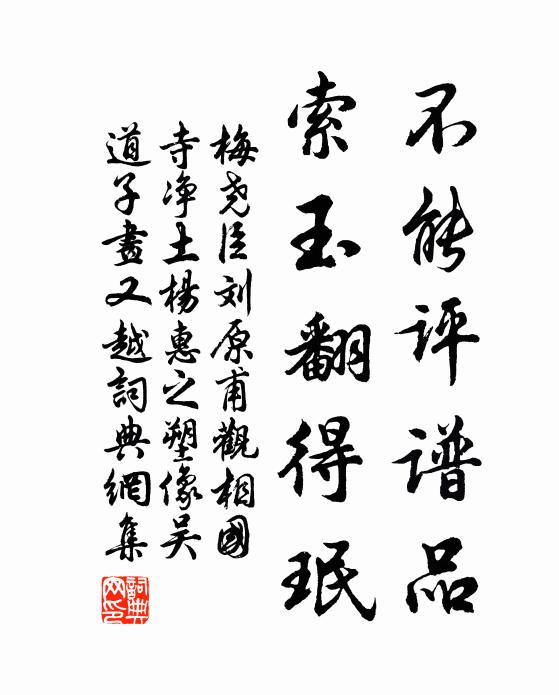 不能评谱品
索玉翻得珉
梅尧臣刘原甫觀相國
寺净土楊惠之塑像吴
道子畫又越詞典網集
詞典网印